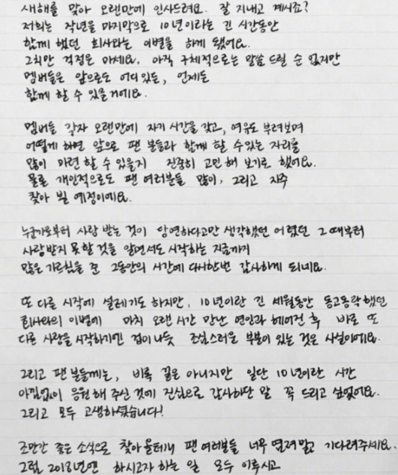 새해를 맞아 오랜만에 인사드려요. 잘 지내고 계시죠?
저희는 작년을 마지막으로 10년이라는 긴 시간동안
함께 했던 회사와는 이별을 하게 됐어요.
그치만 걱정은 마세요. 아직 구체적으로는 말씀 드릴 순 없지만
멤버들은 앞으로도 어디 있든, 언제든
함께 할 수 있을거에요.
멤버들 각자 오랜만에 자기 시간을 갖고, 여유도 부려보며
어떻게 하면 앞으로 팬 분들과 함께 할 수 있는 자리를
많이 마련할 수 있을지 진중히 고민해 보기로 했어요.
물론 개인적으로도 팬 여러분들 많이, 그리고 자주
찾아 뵐 예정이에요.
누군가로부터 사랑 받는 것이 당연하다고만 생각했던 어렸던 그 때부터
사랑받지 못할 것을 알면서도 시작하는 지금까지
많은 가르침을 준 그동안의 시간에 다시한번 감사하게 되네요.
또 다른 시작에 설레기도 하지만, 10년이란 긴 세월동안 동고동락했던
회사와의 이별에 마치 오랜 시간 만난 연인과 헤어진 후 바로 또
다른 사랑을 시작하기엔 겁이나듯 조심스러운 부분이 있는 것은 사실이에요.
그리고 팬 분들께는, 비록 끝은 아니지만 일단 10년이란 시간
아낌없이 응원해 주신 것에 진심으로 감사하단 말 꼭 드리고 싶었어요.
그리고 모두 고생하셨습니다!
조만간 좋은 소식으로 찾아올테니 팬 여러분들 너무 염려말고 기다려주세요.
그럼 2018년엔 하시고자 하는 일 모두 이루시고